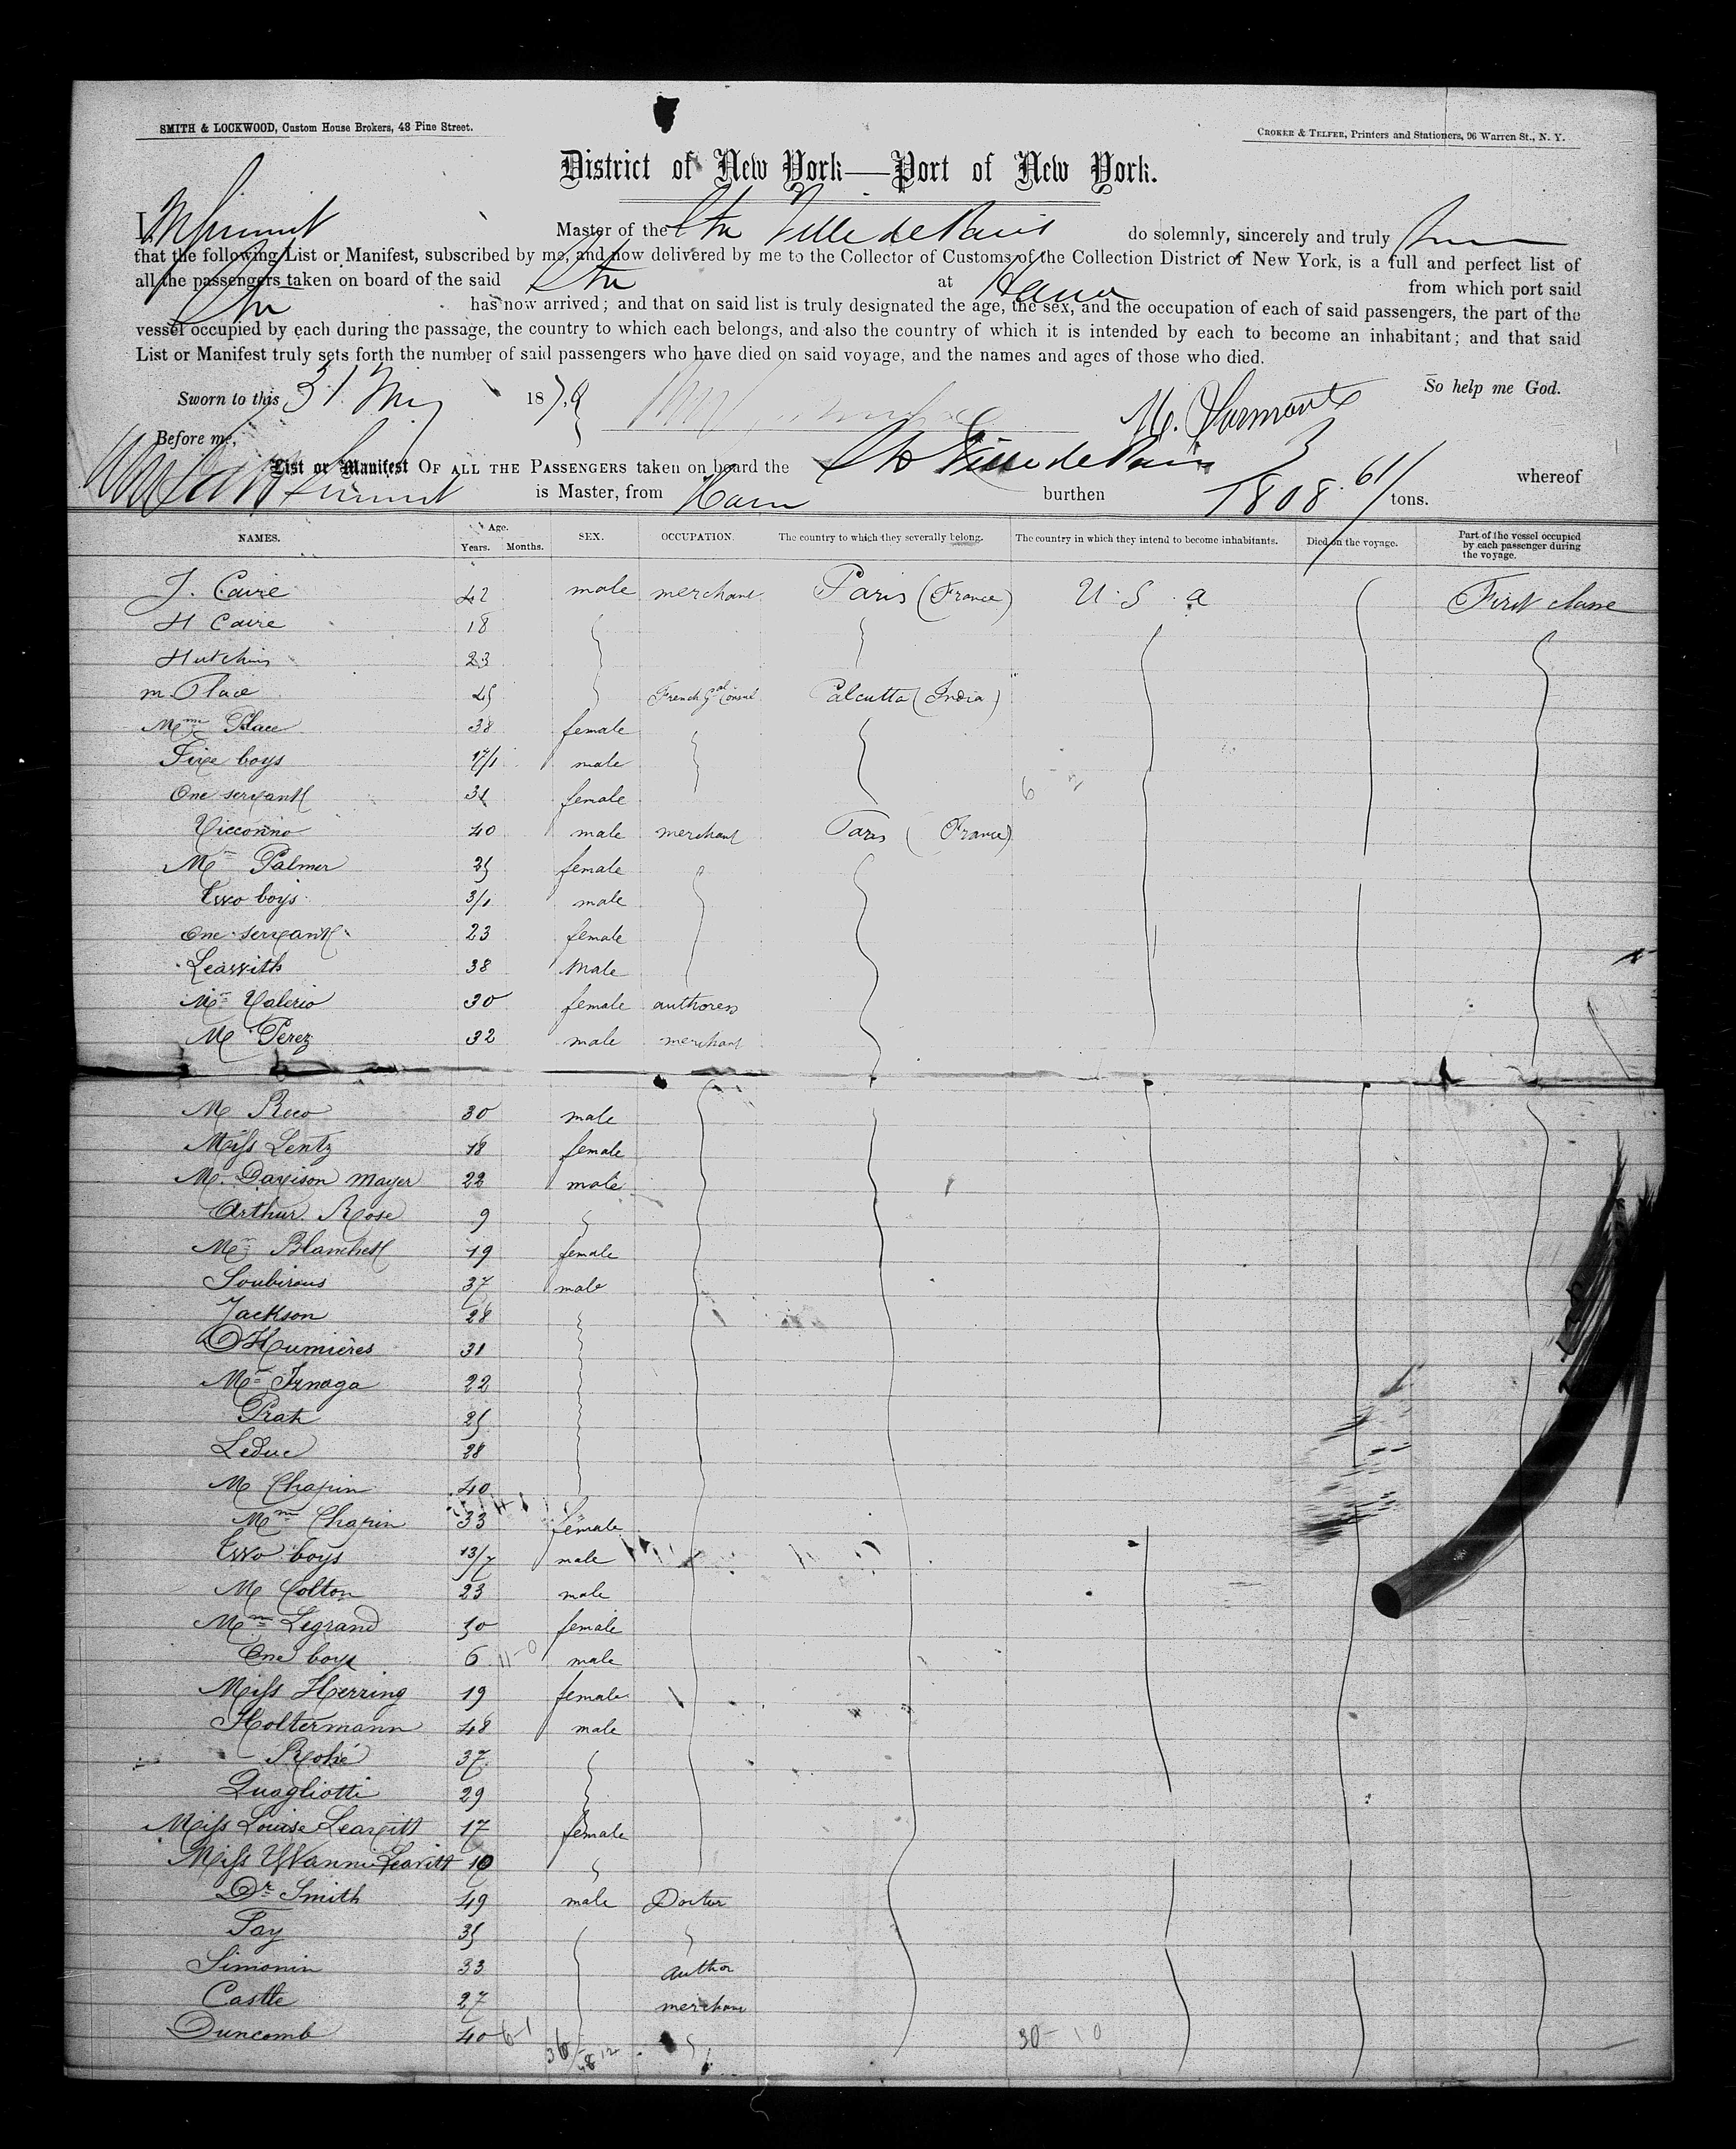 SMITH & LOCKWOOD, Custom House Brokers, 48 Pine Street.
CROKER & TELFER, Printers and Stationers, 96 Warren St., N. Y.
District of New York—Port of New York.
I, Master of the Str Ville de Paris do solemnly, sincerely and truly
that the following List or Manifest, subscribed by me, and now delivered by me to the Collector of Customs of the Collection District of New York, is a full and perfect list of
all the passengers taken on board of the said Str at Havre from which port said
Str has now arrived; and that on said list is truly designated the age, the sex, and the occupation of each of said passengers, the part of the
vessel occupied by each during the passage, the country to which each belongs, and also the country of which it is intended by each to become an inhabitant; and that said
List or Manifest truly sets forth the number of said passengers who have died on said voyage, and the names and ages of those who died.
So help me God.
Sworn to this 31 187
Before me,
List or Manifest OF ALL THE PASSENGERS taken on board the Str Ville de Paris whereof
is Master, from Havre burthen tons.
NAMES. Age. Years. Months. SEX. OCCUPATION. The country to which they severally belong. The country in which they intend to become inhabitants. Died on the voyage. Part of the vessel occupied by each passenger during the voyage.
J. Caire 42 male merchant Paris (France) U. S. a First classe
H Caire 18
Hutchins 23
m. Place 45 French Gal Consul Calcutta (India)
Mme Place 38 female
Five boys 17/1 male
One servant 31 female
40 male merchant Paris (France)
Mme Palmer 25 female
Two boys 3/1 male
One servant 23 female
38 Male
Mme Valerio 30 female authoress
M Perez 32 male merchant
M 30 male
Miss Lentz 18 female
M. Davison Mayer 22 male
Arthur Rose 9
Mme Blanchett 19 female
Soubirous 37 male
Jackson 28
D'Humières 31
22
Prat 25
Leduc 28
M Chapin 40
Mme Chapin 33 female
Two boys 13/7 male
M Colton 23 male
Mme Legrand 30 female
One boy 6 male
Miss Herring 19 female
Holtermann 48 male
37
Quagliotti 29
Miss Louise Leavitt 17 female
Miss Leavitt 10
Dr Smith 49 male Doctor
Fay 35
Simonin 33 author
Castle 27 merchant
Duncomb 40